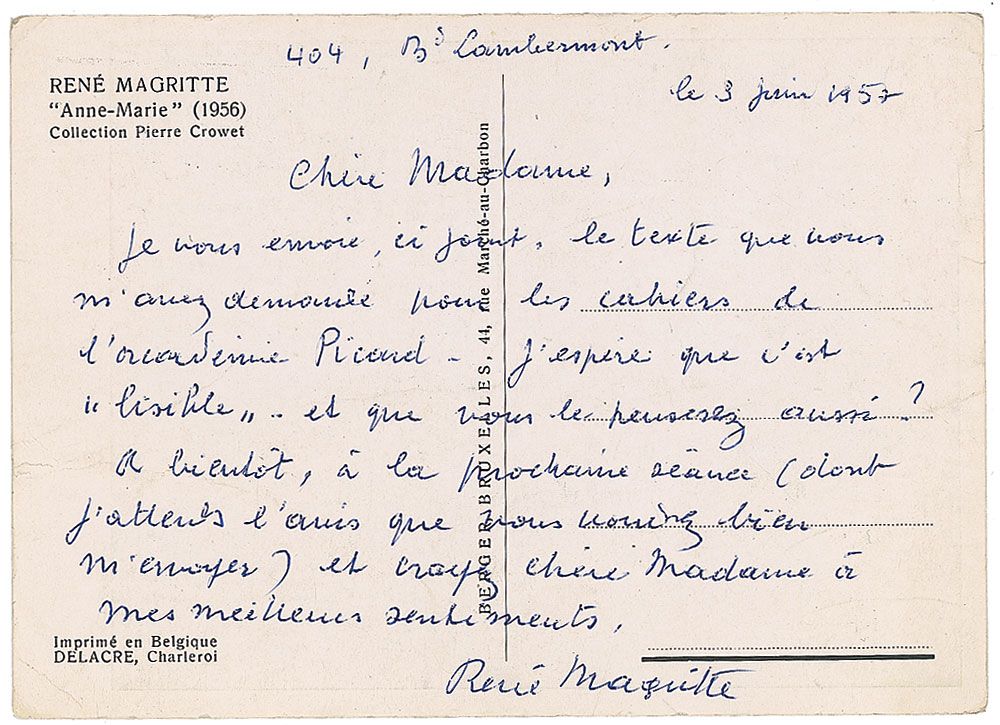 404, Bd Lambermont.
RENÉ MAGRITTE
"Anne-Marie" (1956)
Collection Pierre Crowet
le 3 juin 1957
Chère Madame,
Je vous envoie, ci joint, le texte que vous
m'avez demandé pour les cahiers de
l'académie Picard - J'espère que c'est
"lisible" - et que vous le penserez aussi?
A bientôt, à la prochaine séance (dont
j'attends l'avis que vous voudrez bien
m'envoyer) et croyez chère Madame à
mes meilleurs sentiments,
René Magritte
BERGER-BRUXELLES, 44, rue Marché-au-Charbon
Imprimé en Belgique
DELACRE, Charleroi